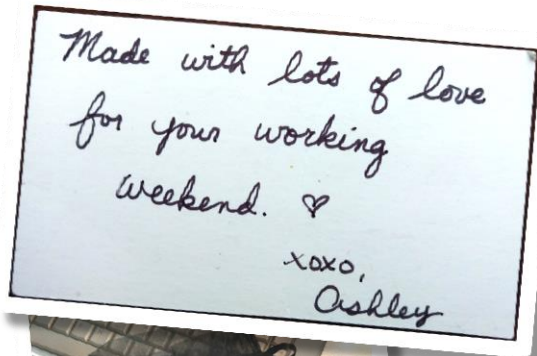 Made with lots of love
for your working
weekend. ♡
xoxo,
Ashley